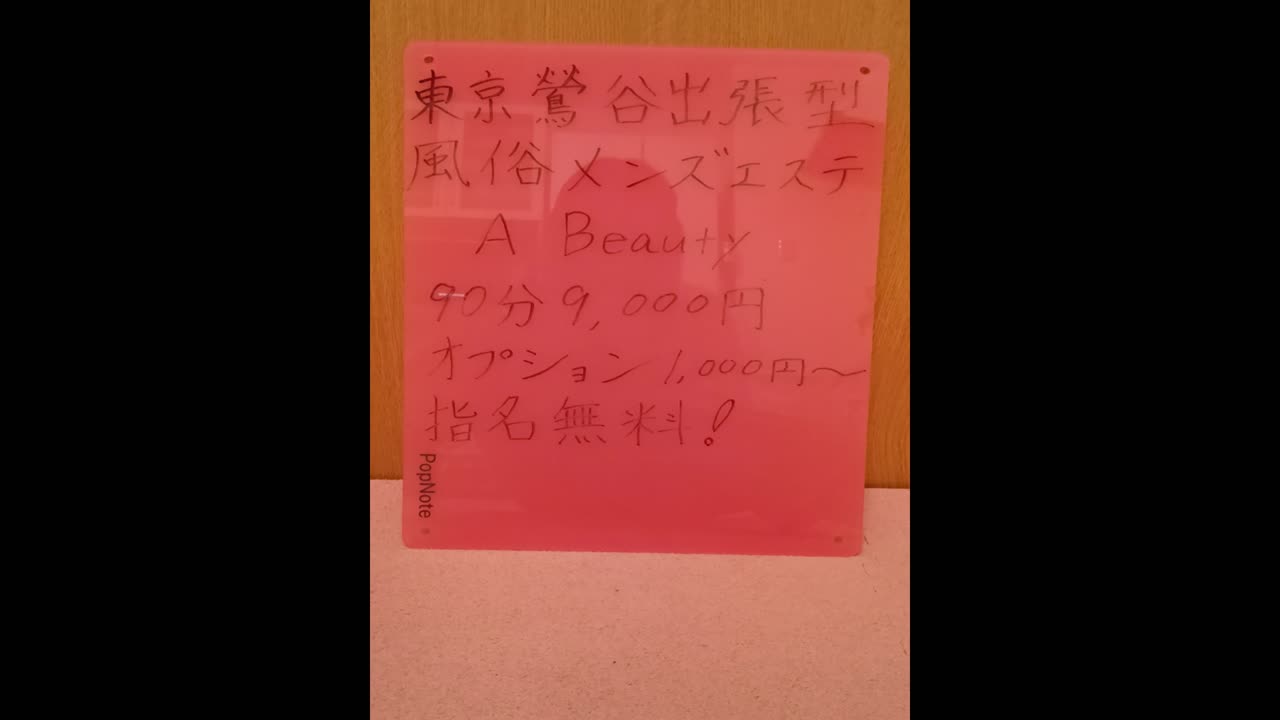 東京鶯谷出張型
風俗メンズエステ
A Beauty
90分9,000円
オプション1,000円～
指名無料!
PopNote